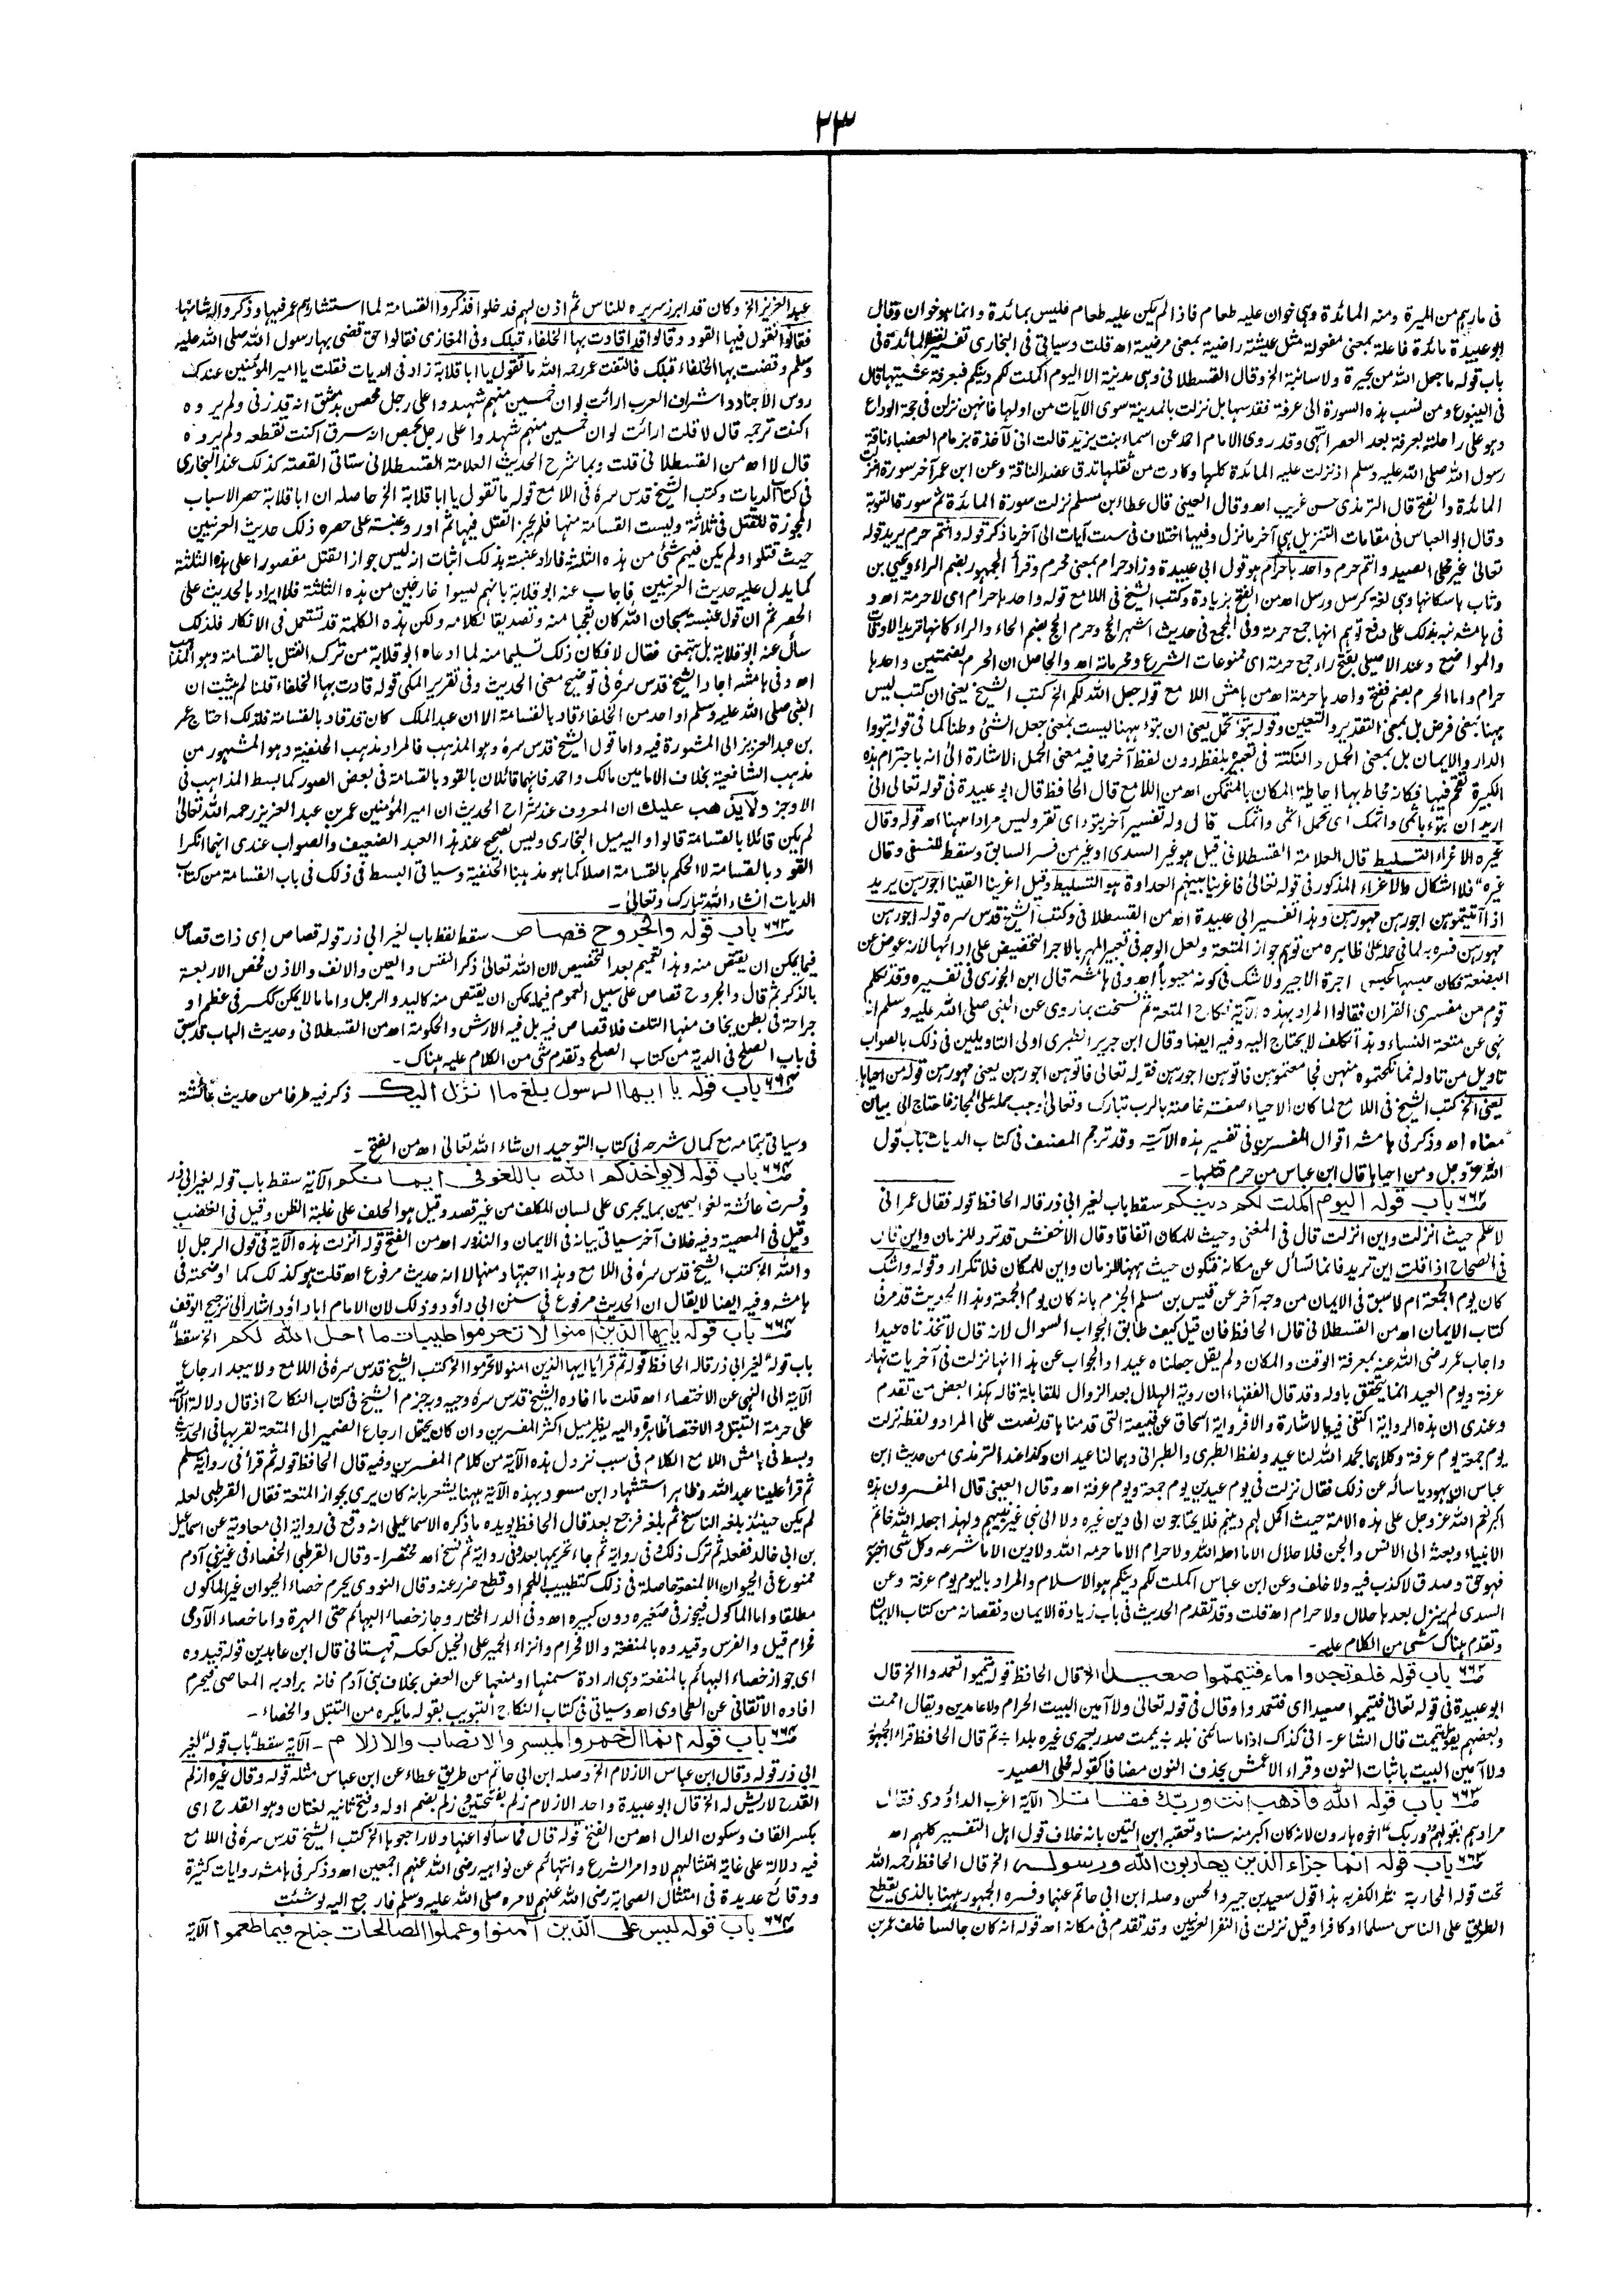 ٢٣
فى ماربهم من الميرة ومنه المائدة وهى خوان عليه طعام فاذا لم يكن عليه طعام فليس بمائدة وانما هو خوان وقال
ابو عبيدة مائدة فاعلة بمعنى مفعولة مثل عيشة راضية بمعنى مرضية اھ قلت وسياتى فى البخارى تفسير لفظ المائدة فى
باب قوله ما جعل الله من بحيرة ولا سائبة الخ وقال القسطلانى وهى مدنية الا اليوم اكملت لكم دينكم فبعرفة عشيتها قال
فى الينبوع ومن نسب هذه السورة الى عرفة فقد سها بل نزلت بالمدينة سوى الآيات من اولها فانهن نزلن فى حجة الوداع
وهو على راحلته بعرفة بعد العصر انتهى وقد روى الامام احمد عن اسماء بنت يزيد قالت انى لآخذة بزمام العضباء ناقة
رسول الله صلى الله عليه وسلم اذ نزلت عليه المائدة كلها وكادت من ثقلها تدق عضد الناقة وعن ابن عمر آخر سورة انزلت
المائدة والفتح قال الترمذى حسن غريب اھ وقال العينى قال عطاء بن مسلم نزلت سورة المائدة ثم سورة التوبة
وقال ابو العباس فى مقامات التنزيل هى آخر ما نزل وفيها اختلاف فى ست آيات الى آخر ما ذكر قوله وانتم حرم يريد قوله
تعالى غير محلى الصيد وانتم حرم واحدها حرام هو قول ابى عبيدة وزاد حرام بمعنى محرم وقرأ الجمهور بضم الراء ويحيى بن
وثاب باسكانها وهى لغة كرسل ورسل اھ من الفتح بزيادة وكتب الشيخ فى اللامع قوله واحدها حرام اى لا حرمة اھ و
فى هامشه نبه بذلك على دفع توهم انها جمع حرمة وفى المجمع فى حديث اشهر الحج وحرم الحج بضم الحاء والراء كانها تريد الاوقات
والمواضع وعند الاصيلى بفتح راء جمع حرمة اى ممنوعات الشرع ومحرماته اھ والحاصل ان الحرم بضمتين واحدها
حرام واما الحرم بضم ففتح واحدها حرمة اھ من هامش اللامع قوله جعل الله لكم الخ كتب الشيخ يعنى ان كتب ليس
ههنا بمعنى فرض بل بمعنى التقدير والتعيين وقوله تبوء تحمل يعنى ان تبوء ههنا ليست بمعنى جعل الشئ وطنا كما فى قوله تبوءوا
الدار والايمان بل بمعنى الحمل والنكتة فى تعبيره بلفظ دون لفظ آخر مما فيه معنى الحمل الاشارة الى انه باجترام هذه
الكبيرة تقحم فيها فكانه محاط بها احاطة المكان بالمتمكن اھ من اللامع قال الحافظ قال ابو عبيدة فى قوله تعالى انى
اريد ان تبوء باثمى واثمك اى تحمل اثمى واثمك قال وله تفسير آخر تبوء اى تقر وليس مرادا ههنا اھ قوله وقال
غيره الاغراء التسليط قال العلامة القسطلانى قيل هو غير السدى او غير من فسر السابق وسقط للنسفى وقال
غيره فلا اشكال والاغراء المذكور فى قوله تعالى فاغرينا بينهم العداوة هو التسليط وقيل اغرينا القينا اجورهن يريد
اذا آتيتموهن اجورهن مهورهن وهذا تفسير ابى عبيدة اھ من القسطلانى وكتب الشيخ قدس سره قوله اجورهن
مهورهن فسره بہ لما فى حمله على ظاهره من توهم جواز المتعة ولعل الوجه فى تعبير المهر بالاجر التحضيض على ادائها لانه عوض عن
البضعة فكان حبسها كحبس اجرة الاجير ولا شك فى كونه معيوبا اھ وفى هامشه قال ابن الجوزى فى تفسيره وقد تكلم
قوم من مفسرى القران فقالوا المراد بهذه الآية نكاح المتعة ثم نسخت بما روى عن النبى صلى الله عليه وسلم انه
نهى عن متعة النساء وهذا تكلف لا يحتاج اليه وفيه ايضا وقال ابن جرير الطبرى اولى التاويلين فى ذلك بالصواب
تاويل من تاوله فما نكحتموه منهن فجامعتموهن فآتوهن اجورهن فقوله تعالى فآتوهن اجورهن يعنى مهورهن قوله من احياها
يعنى الخ كتب الشيخ فى اللامع لما كان الاحياء صفة خاصة بالرب تبارك وتعالى وجب حمله على المجاز فاحتاج الى بيان
معناه اھ وذكر فى هامشه اقوال المفسرين فى تفسير هذه الآية وقد ترجم المصنف فى كتاب الديات باب قول
الله عز وجل ومن احياها قال ابن عباس من حرم قتلها۔
ص٦٦٢ باب قوله اليوم اكملت لكم دينكم سقط باب لغير ابى ذر قاله الحافظ قوله فقال عمر انى
لاعلم حيث انزلت واين انزلت قال فى المغنى وحيث للمكان اتفاقا وقال الاخفش قد ترد للزمان واين قال
فى الصحاح اذا قلت اين تريد فانما تسأل عن مكانه فتكون حيث ههنا للزمان واين للمكان فلا تكرار وقوله واشك
كان يوم الجمعة ام لا سبق فى الايمان من وجه آخر عن قيس بن مسلم الجزم بانه كان يوم الجمعة وهذا الحديث قد مر فى
كتاب الايمان اھ من القسطلانى قال الحافظ فان قيل كيف طابق الجواب السوال لانه قال لاتخذناه عيدا
واجاب عمر رضى الله عنه بمعرفة الوقت والمكان ولم يقل جعلناه عيدا والجواب عن هذا انها نزلت فى اخريات نهار
عرفة ويوم العيد انما يتحقق باوله وقد قال الفقهاء ان روية الهلال بعد الزوال للقابلة قاله هكذا البعض من تقدم
وعندى ان هذه الرواية اكتفى فيها بالاشارة والا فرواية اسحاق عن قبيصة التى قدمناها قد نصت على المراد ولفظه نزلت
يوم جمعة يوم عرفة وكلاهما بحمد الله لنا عيد ولفظ الطبرى والطبرانى وهما لنا عيدان وكذا عند الترمذى من حديث ابن
عباس ان يهوديا سأله عن ذلك فقال نزلت فى يوم عيدين يوم جمعة ويوم عرفة اھ وقال العينى قال المفسرون هذه
اكبر نعم الله عز وجل على هذه الامة حيث اكمل لهم دينهم فلا يحتاجون الى دين غيره ولا الى نبى غير نبيهم ولهذا جعله الله خاتم
الانبياء وبعثه الى الانس والجن فلا حلال الا ما احله الله ولا حرام الا ما حرمه الله ولا دين الا ما شرعه وكل شئ اخبر به
فهو حق وصدق لا كذب فيه ولا خلف وعن ابن عباس اكملت لكم دينكم هو الاسلام والمراد باليوم يوم عرفة وعن
السدى لم ينزل بعدها حلال ولا حرام اھ قلت وقد تقدم الحديث فى باب زيادة الايمان ونقصانه من كتاب الايمان
وتقدم هناك شئ من الكلام عليه۔
ص٦٦٣ باب قوله فلم تجدوا ماء فتيمموا صعيدا الخ قال الحافظ قوله تيمموا تعمدوا الخ قال
ابو عبيدة فى قوله تعالى فتيمموا صعيدا اى فتعمدوا وقال فى قوله تعالى ولا آمين البيت الحرام ولا عامدين ويقال اممت
وبعضهم يقول تيممت قال الشاعر۔ انى كذاك اذا ما ساءنى بلد ÷ يممت صدر بعيرى غيره بلدا ÷ ثم قال الحافظ قراءة الجمهور
ولا آمين البيت باثبات النون وقراء الاعمش بحذف النون مضافا كقوله محلى الصيد۔
ص٦٦٣ باب قوله الله فاذهب انت وربك فقاتلا الآية اغرب الداؤدى فقال
مرادهم بقولهم وربك اخوه هارون لانه كان اكبر منه سنا وتعقبه ابن التين بانه خلاف قول اهل التفسير كلهم اھ
ص٦٦٣ باب قوله انما جزاء الذين يحاربون الله ورسوله الخ قال الحافظ رحمه الله
تحت قوله المحاربة لله الكفر به هذا قول سعيد بن جبير والحسن وصله ابن ابى حاتم عنهما وفسره الجمهور ههنا بالذى يقطع
الطريق على الناس مسلما او كافرا وقيل نزلت فى النفر العرنيين وقد تقدم فى مكانه اھ قوله انه كان جالسا خلف عمر بن
عبد العزيز الخ وكان قد ابرز سريره للناس ثم اذن لهم فدخلوا فذكروا القسامة لما استشارهم عمر فيها وذكروا له شانها
فقالوا نقول فيها القود وقالوا قد اقادت بها الخلفاء قبلك وفى المغازى فقالوا حق قضى بها رسول الله صلى الله عليه
وسلم وقضت بها الخلفاء قبلك فالتفت عمر رحمه الله ما تقول يا ابا قلابة زاد فى الديات فقلت يا امير المؤمنين عندك
روس الاجناد واشراف العرب ارائت لو ان خمسين منهم شهدوا على رجل محصن بدمشق انه قد زنى ولم يروه
اكنت ترجمه قال لا قلت ارائت لو ان خمسين منهم شهدوا على رجل بحمص انه سرق اكنت تقطعه ولم يروه
قال لا اھ من القسطلانى قلت وبما شرح الحديث العلامة القسطلانى ستاتى القصة كذلك عند البخارى
فى كتاب الديات وكتب الشيخ قدس سره فى اللامع قوله ما تقول يا ابا قلابة الخ حاصله ان ابا قلابة حصر الاسباب
المجوزة للقتل فى ثلاثة وليست القسامة منها فلم يجز القتل فيها ثم اورد عنبسة على حصره ذلك حديث العرنيين
حيث قتلوا ولم يكن فيهم شئ من هذه الثلثة فاراد عنبسة بذلك اثبات انه ليس جواز القتل مقصورا على هذه الثلثة
كما يدل عليه حديث العرنيين فاجاب عنه ابو قلابة بانهم ليسوا خارجين من هذه الثلثة فلا ايراد بالحديث على
الحصر ثم ان قول عنبسة سبحان الله كان تعجبا منه وتصديقا لكلامه ولكن هذه الكلمة قد تستعمل فى الانكار فلذلك
سأل عنه ابو قلابة بل تتهمنى فقال لا فكان ذلك تسليما منه لما ادعاه ابو قلابة من ترك القتل بالقسامة وهو المذهب
اھ وفى هامشه اجاد الشيخ قدس سره فى توضيح معنى الحديث وفى تقرير المكى قوله قادت بها الخلفاء قلنا لم يثبت ان
النبى صلى الله عليه وسلم او احد من الخلفاء قاد بالقسامة الا ان عبد الملك كان قد قاد بالقسامة فلذلك احتاج عمر
بن عبد العزيز الى المشورة فيه واما قول الشيخ قدس سره وهو المذهب فالمراد مذهب الحنفية وهو المشهور من
مذهب الشافعية بخلاف الامامين مالك واحمد فانهما قائلان بالقود بالقسامة فى بعض الصور كما بسط المذاهب فى
الاوجز ولا يذهب عليك ان المعروف عند شراح الحديث ان امير المؤمنين عمر بن عبد العزيز رحمه الله تعالى
لم يكن قائلا بالقسامة قالوا واليه ميل البخارى وليس بصحيح عند هذا العبد الضعيف والصواب عندى انهما انكرا
القود بالقسامة لا الحكم بالقسامة اصلا كما هو مذهبنا الحنفية وسياتى البسط فى ذلك فى باب القسامة من كتاب
الديات انشاء الله تبارك وتعالى۔
ص٦٦٣ باب قوله والجروح قصاص سقط لفظ باب لغير ابى ذر قوله قصاص اى ذات قصاص
فيما يمكن ان يقتص منه وهذا تعميم بعد التخصيص لان الله تعالى ذكر النفس والعين والانف والاذن فخص الاربعة
بالذكر ثم قال والجروح قصاص على سبيل العموم فيما يمكن ان يقتص منه كاليد والرجل واما ما لا يمكن ككسر فى عظم او
جراحة فى بطن يخاف منها التلف فلا قصاص فيه بل فيه الارش والحكومة اھ من القسطلانى وحديث الباب قد سبق
فى باب الصلح فى الدية من كتاب الصلح وتقدم شئ من الكلام عليه هناك۔
ص٦٦٣ باب قوله يا ايها الرسول بلغ ما انزل اليك ذكر فيه طرفا من حديث عائشة
وسياتى بتمامه مع كمال شرحه فى كتاب التوحيد ان شاء الله تعالى اھ من الفتح۔
ص٦٦٤ باب قوله لا يواخذكم الله باللغو فى ايمانكم الآية سقط باب قوله لغير ابى ذر
وفسرت عائشة لغو اليمين بما يجرى على لسان المكلف من غير قصد وقيل هو الحلف على غلبة الظن وقيل فى الغضب
وقيل فى المعصية وفيه خلاف آخر سياتى بيانه فى الايمان والنذور اھ من الفتح قوله انزلت هذه الآية فى قول الرجل لا
والله الخ كتب الشيخ قدس سره فى اللامع وهذا اجتهاد منها لا انه حديث مرفوع اھ قلت هو كذلك كما اوضحته فى
هامشه وفيه ايضا لا يقال ان الحديث مرفوع فى سنن ابى داؤد وذلك لان الامام ابا داؤد اشار الى ترجيح الوقف
ص٦٦٤ باب قوله يايها الذين امنوا لا تحرموا طيبات ما احل الله لكم الخ سقط
باب قوله لغير ابى ذر قاله الحافظ قوله ثم قرأ يا ايها الذين امنوا لا تحرموا الخ كتب الشيخ قدس سره فى اللامع ولا يبعد ارجاع
الآية الى النهى عن الاختصاء اھ قلت ما افاده الشيخ قدس سره وجيه وبه جزم الشيخ فى كتاب النكاح اذ قال دلالة الآية
على حرمة التبتل والاختصاء ظاهرة واليه يظهر ميل اكثر المفسرين وان كان يحتمل ارجاع الضمير الى المتعة لقربها فى الحديث
وبسط فى هامش اللامع الكلام فى سبب نزول هذه الآية من كلام المفسرين وفيه قال الحافظ قوله ثم قرأ فى رواية مسلم
ثم قرأ علينا عبد الله وظاهر استشهاد ابن مسعود بهذه الآية ههنا يشعر بانه كان يرى بجواز المتعة فقال القرطبى لعله
لم يكن حينئذ بلغه الناسخ ثم بلغه فرجع بعد قال الحافظ يويده ما ذكره الاسماعيلى انه وقع فى رواية ابى معاوية عن اسماعيل
بن ابى خالد ففعله ثم ترك ذلك وفى رواية ثم جاء تحريمها بعد وفى رواية ثم نسخ اھ مختصرا۔ وقال القرطبى الخصاء فى غير بنى آدم
ممنوع فى الحيوان الا لمنفعة حاصلة فى ذلك كتطييب اللحم او قطع ضرر عنه وقال النووى يحرم خصاء الحيوان غير الماكول
مطلقا واما الماكول فيجوز فى صغيره دون كبيره اھ وفى الدر المختار وجاز خصاء البهائم حتى الهرة واما خصاء الآدمى
فحرام قيل والفرس وقيدوه بالمنفعة والا فحرام وانزاء الحمير على الخيل كعكسه قهستانى قال ابن عابدين قوله قيدوه
اى جواز خصاء البهائم بالمنفعة وهى ارادة سمنها او منعها عن العض بخلاف بنى آدم فانه يراد به المعاصى فيحرم
افاده الاتقانى عن الطحاوى اھ وسياتى فى كتاب النكاح التبويب بقوله ما يكره من التبتل والخصاء۔
ص٦٦٤ باب قوله انما الخمر والميسر والانصاب والازلام۔ الآية سقط باب قوله لغير
ابى ذر قوله وقال ابن عباس الازلام الخ وصله ابن ابى حاتم من طريق عطاء عن ابن عباس مثله قوله وقال غيره الزلم
القدح لا ريش له الخ قال ابو عبيدة واحد الازلام زلم بفتحتين وزلم بضم اوله وفتح ثانيه لغتان وهو القدح اى
بكسر القاف وسكون الدال اھ من الفتح قوله قال فما سألوا عنها ولا راجعوها الخ كتب الشيخ قدس سره فى اللامع
فيه دلالة على غاية امتثالهم لاوامر الشرع وانتهائهم عن نواهيه رضى الله عنهم اجمعين اھ وذكر فى هامشه روايات كثيرة
ووقائع عديدة فى امتثال الصحابة رضى الله عنهم لامره صلى الله عليه وسلم فارجع اليه لو شئت
ص٦٦٤ باب قوله ليس على الذين آمنوا وعملوا الصالحات جناح فيما طعموا الآية